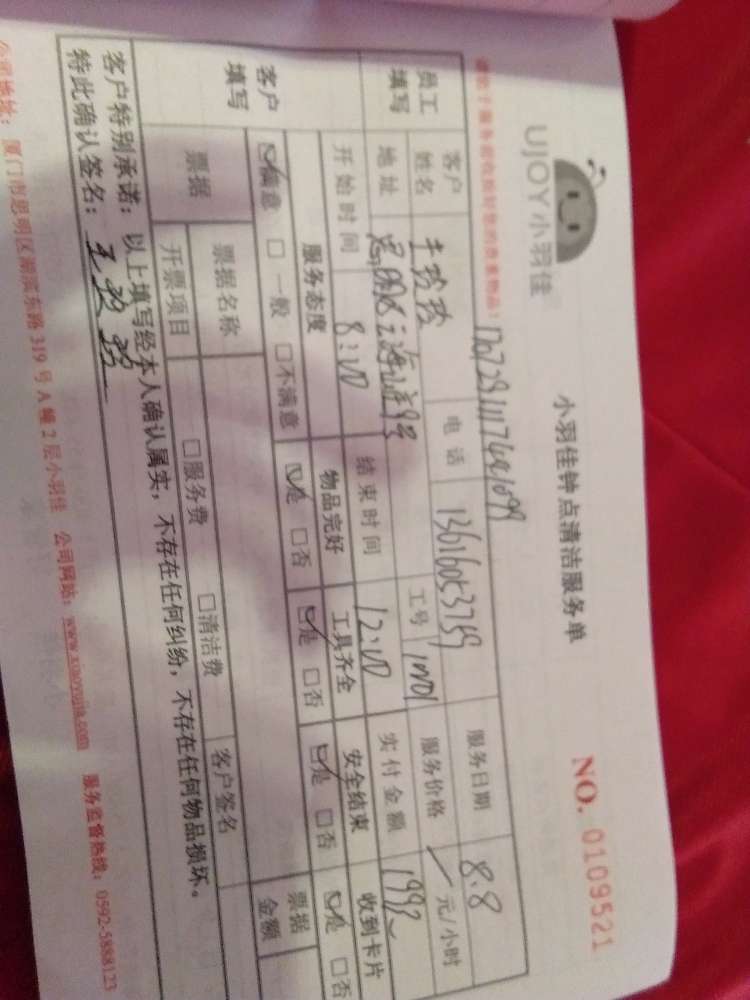 UJOY小羽佳
小羽佳钟点清洁服务单
NO. 0109521
员工填写
客户姓名
电话 13616053759
服务日期 8.8
地址
工号
服务价格 / 元/小时
开始时间 8:00
结束时间 12:00
实付金额 1992
客户填写
服务态度 物品完好 工具齐全 安全结束 收到卡片
☑满意 □一般 □不满意 ☑是 □否 ☑是 □否 ☑是 □否 ☑是 □否
票据 票据名称 □服务费 □清洁费 票据金额
开票项目 客户签名
客户特别承诺:以上填写经本人确认属实,不存在任何纠纷,不存在任何物品损坏。
特此确认签名:
公司地址:厦门市思明区湖滨东路319号A幢2层小羽佳 公司网站:www.xiaoyujia.com 服务监督热线:0592-5888123